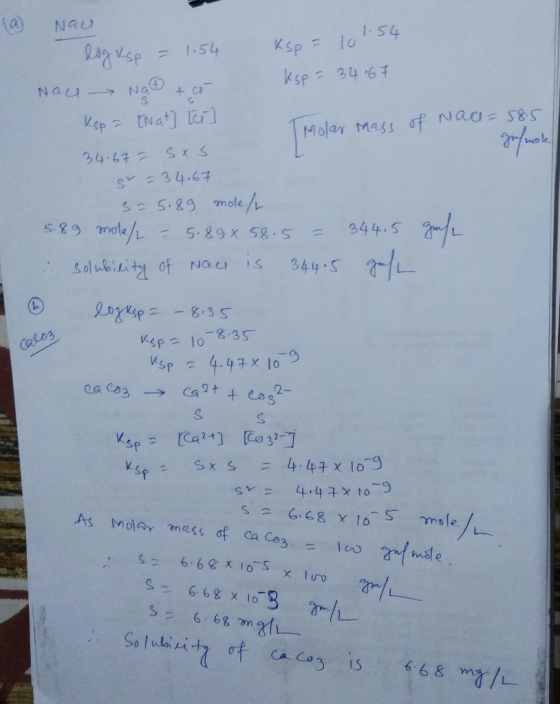 (a) NaCl
log Ksp = 1.54 Ksp = 10^1.54
Ksp = 34.67
NaCl → Na⊕ + Cl⁻
S S
Ksp = [Na⁺] [Cl⁻]
[Molar mass of NaCl = 58.5 gm/mole
34.67 = S × S
S² = 34.67
S = 5.89 mole/L
5.89 mole/L = 5.89 × 58.5 = 344.5 gm/L
∴ Solubility of NaCl is 344.5 gm/L
(b) log Ksp = -8.35
CaCO3
Ksp = 10^-8.35
Ksp = 4.47 × 10^-9
CaCO3 → Ca²⁺ + CO3²⁻
S S
Ksp = [Ca²⁺] [CO3²⁻]
Ksp = S × S = 4.47 × 10^-9
S² = 4.47 × 10^-9
S = 6.68 × 10^-5 mole/L.
As Molar mass of CaCO3 = 100 gm/mole.
∴ S = 6.68 × 10^-5 × 100 gm/L
S = 6.68 × 10^-3 gm/L
S = 6.68 mg/L
∴ Solubility of CaCO3 is 6.68 mg/L